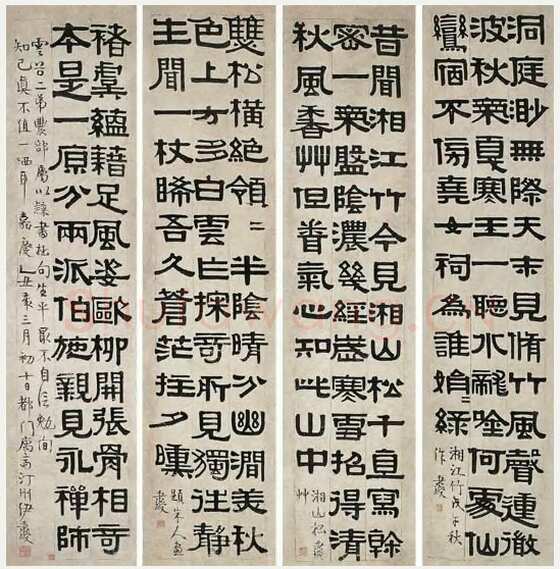 洞庭渺無際天末見脩竹風聲連澈
波秋氣夏寒玉一聽水龍唫何處仙
鸞宿不傷堯女祠為誰娟〻綠
湘江竹戊子秋
作
昔聞湘江竹今見湘山松千直寫幹
密一氣盤陰濃幾經歲寒雪招得清
秋風香艸但眷氣心知此山中
湘山松
艸
雙松橫絕領〻半陰晴分幽澗美秋
色上方多白雲亡探奇所見獨往靜
生聞一杖睎吾久蒼茫拄夕曛
題宋人畫
褚虞蘊藉足風姿歐柳開張骨相奇
本是一原分兩派伯施親見永禪師
雲谷二弟農部屬以隸書拙句生平最不自信勉徇
知己真不值一哂耳嘉慶乙丑歲三月初十日都門寓齋汀州伊秉綬